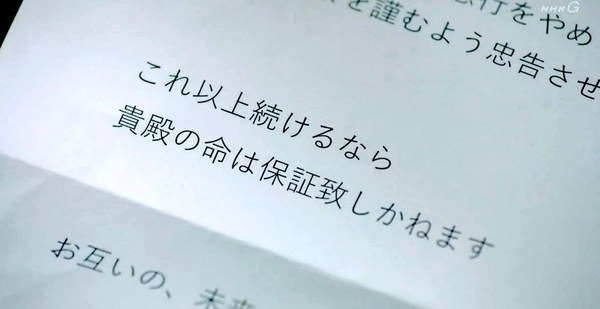 NHK G
行をやめ
を謹むよう忠告させ
これ以上続けるなら
貴殿の命は保証致しかねます
お互いの、未来